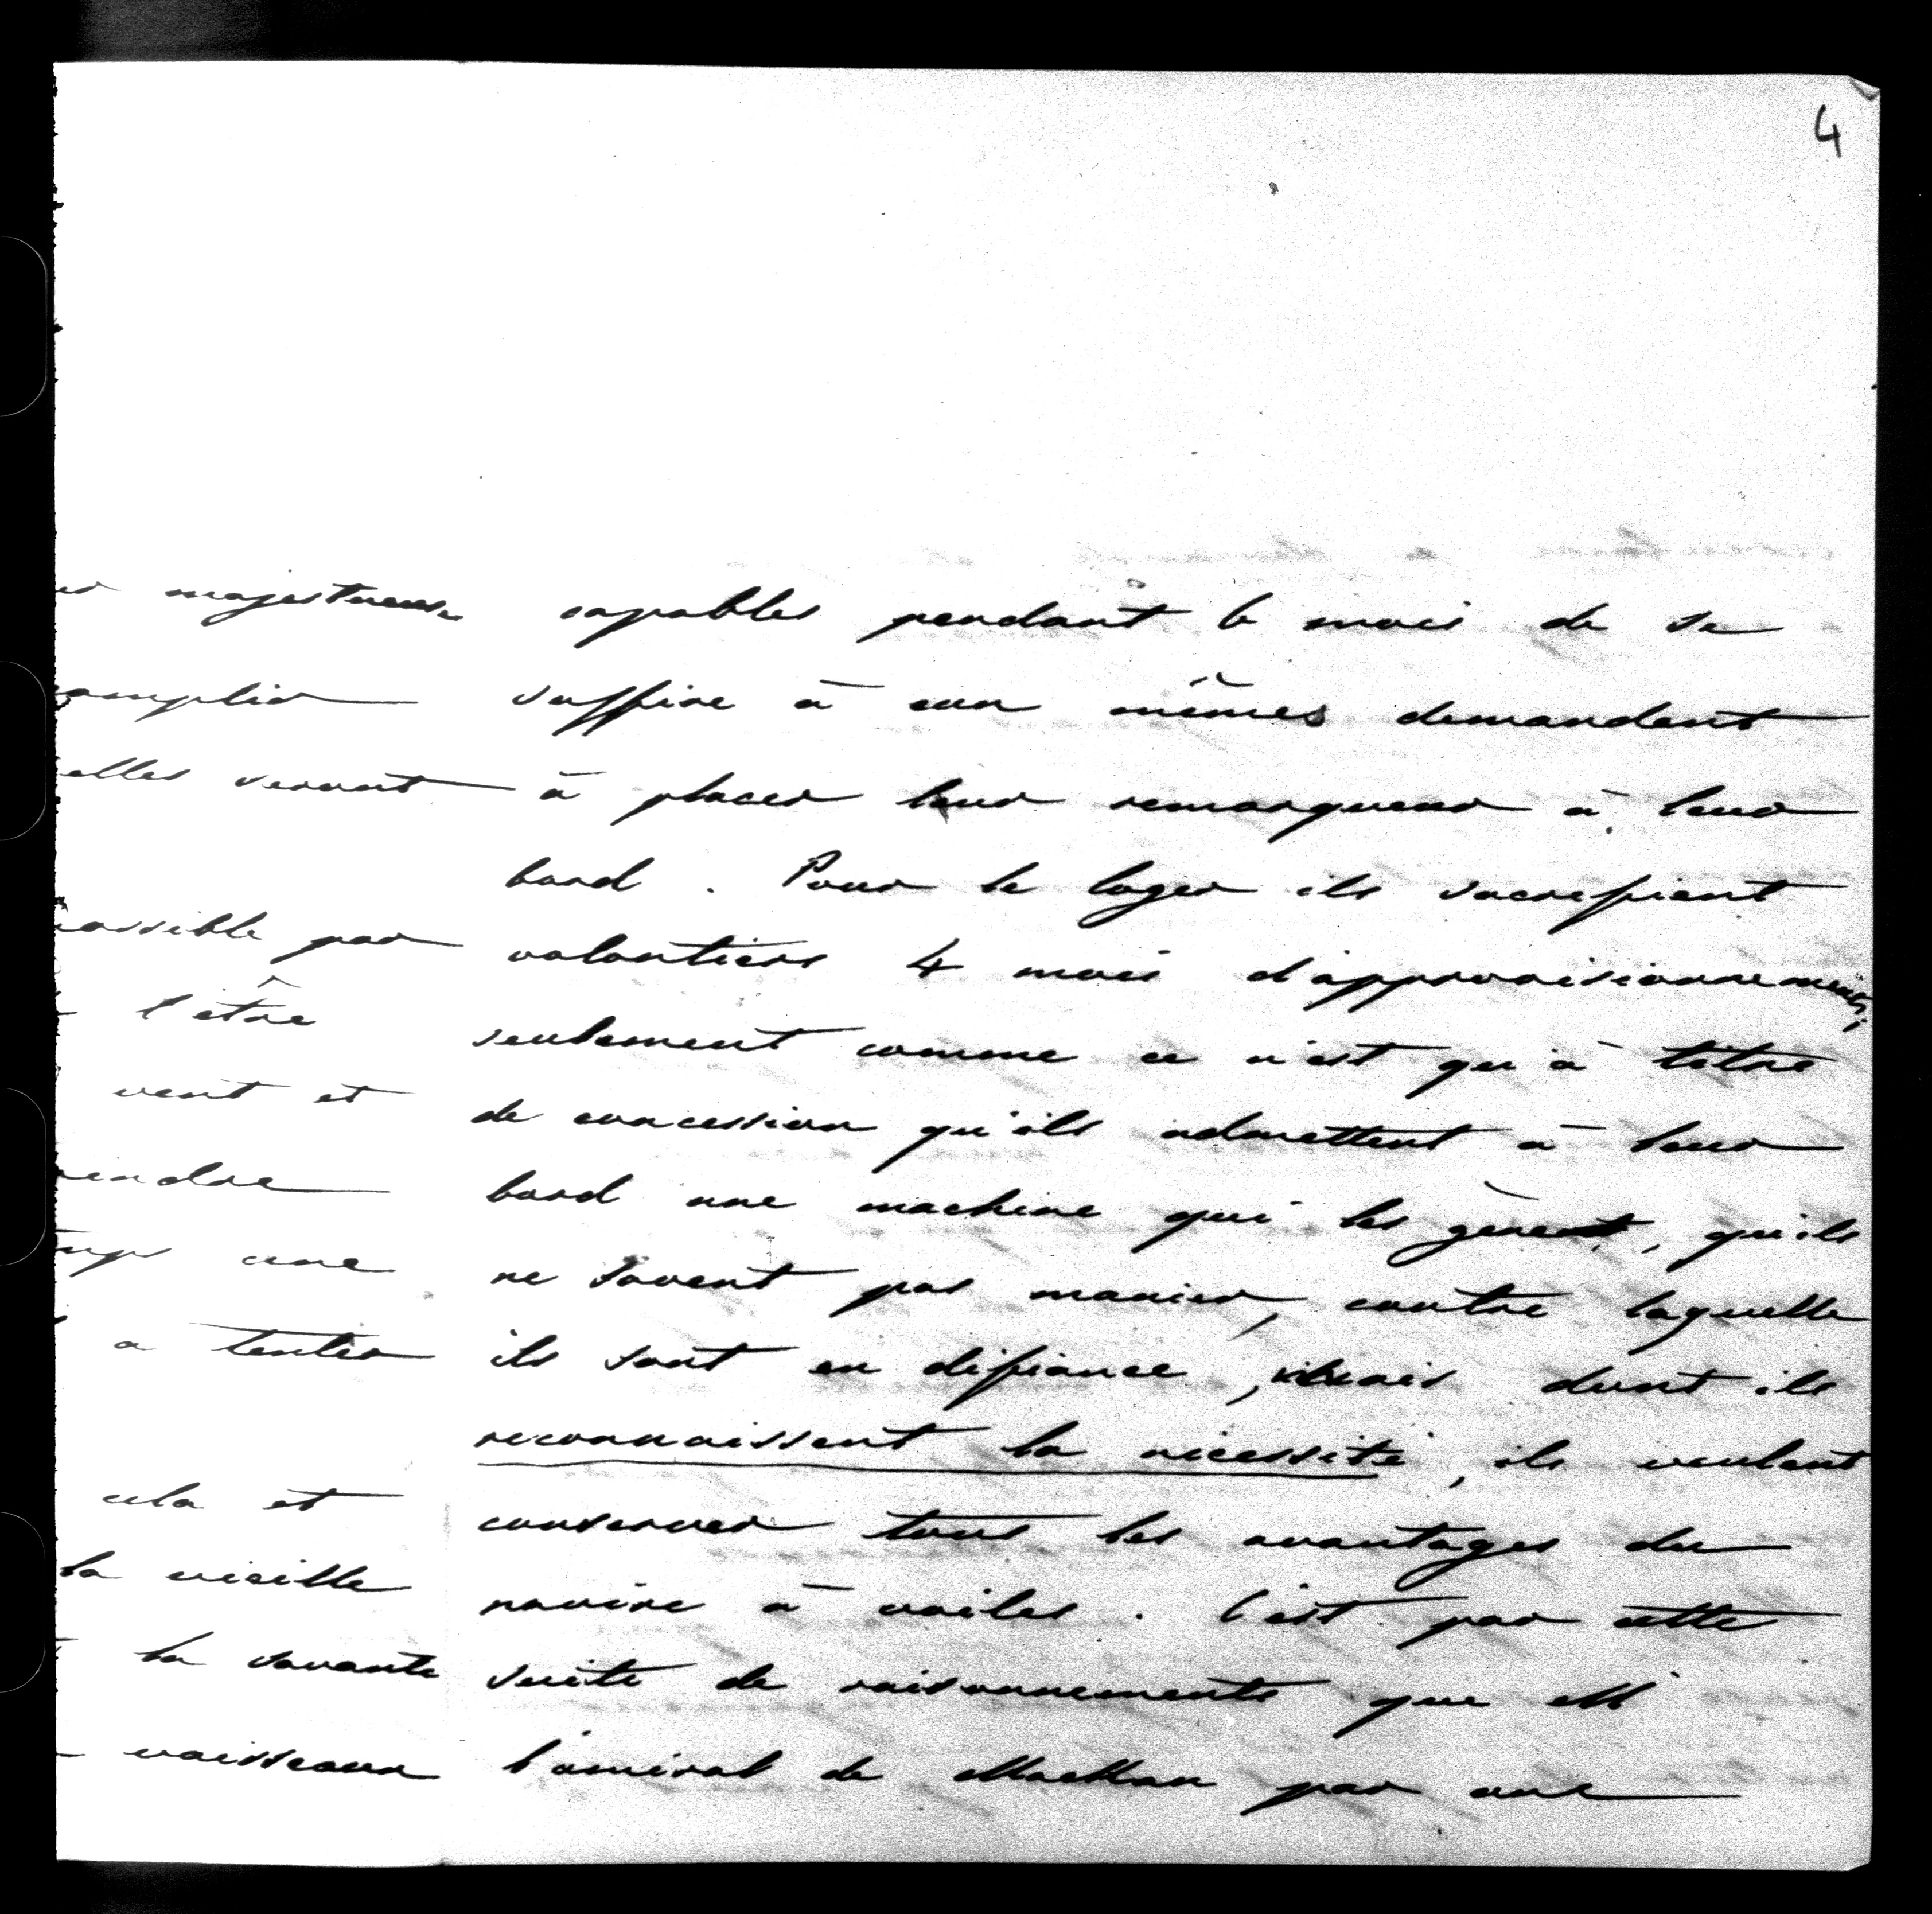 4
majestueuse
elles seront
possible par
l'être
vent et
rendre
une
a tenter
cela et
la vieille
la savante
vaisseaux
capables pendant 6 mois de se
suffire à eux mêmes demandent
à placer leur remorqueur à leur
bord. Pour le loger ils sacrifient
volontiers 4 mois d'approvisionnement;
seulement comme ce n'est qu'à titre
de concession qu'ils admettent à leur
bord une machine qui les gène, qu'ils
ne savent pas manier, contre laquelle
ils sont en défiance, mais dont ils
reconnaissent la nécessité, ils veulent
conserver tous les avantages du
navire à voiles. C'est par cette
suite de raisonnements que M
l'amiral de Mackau par une